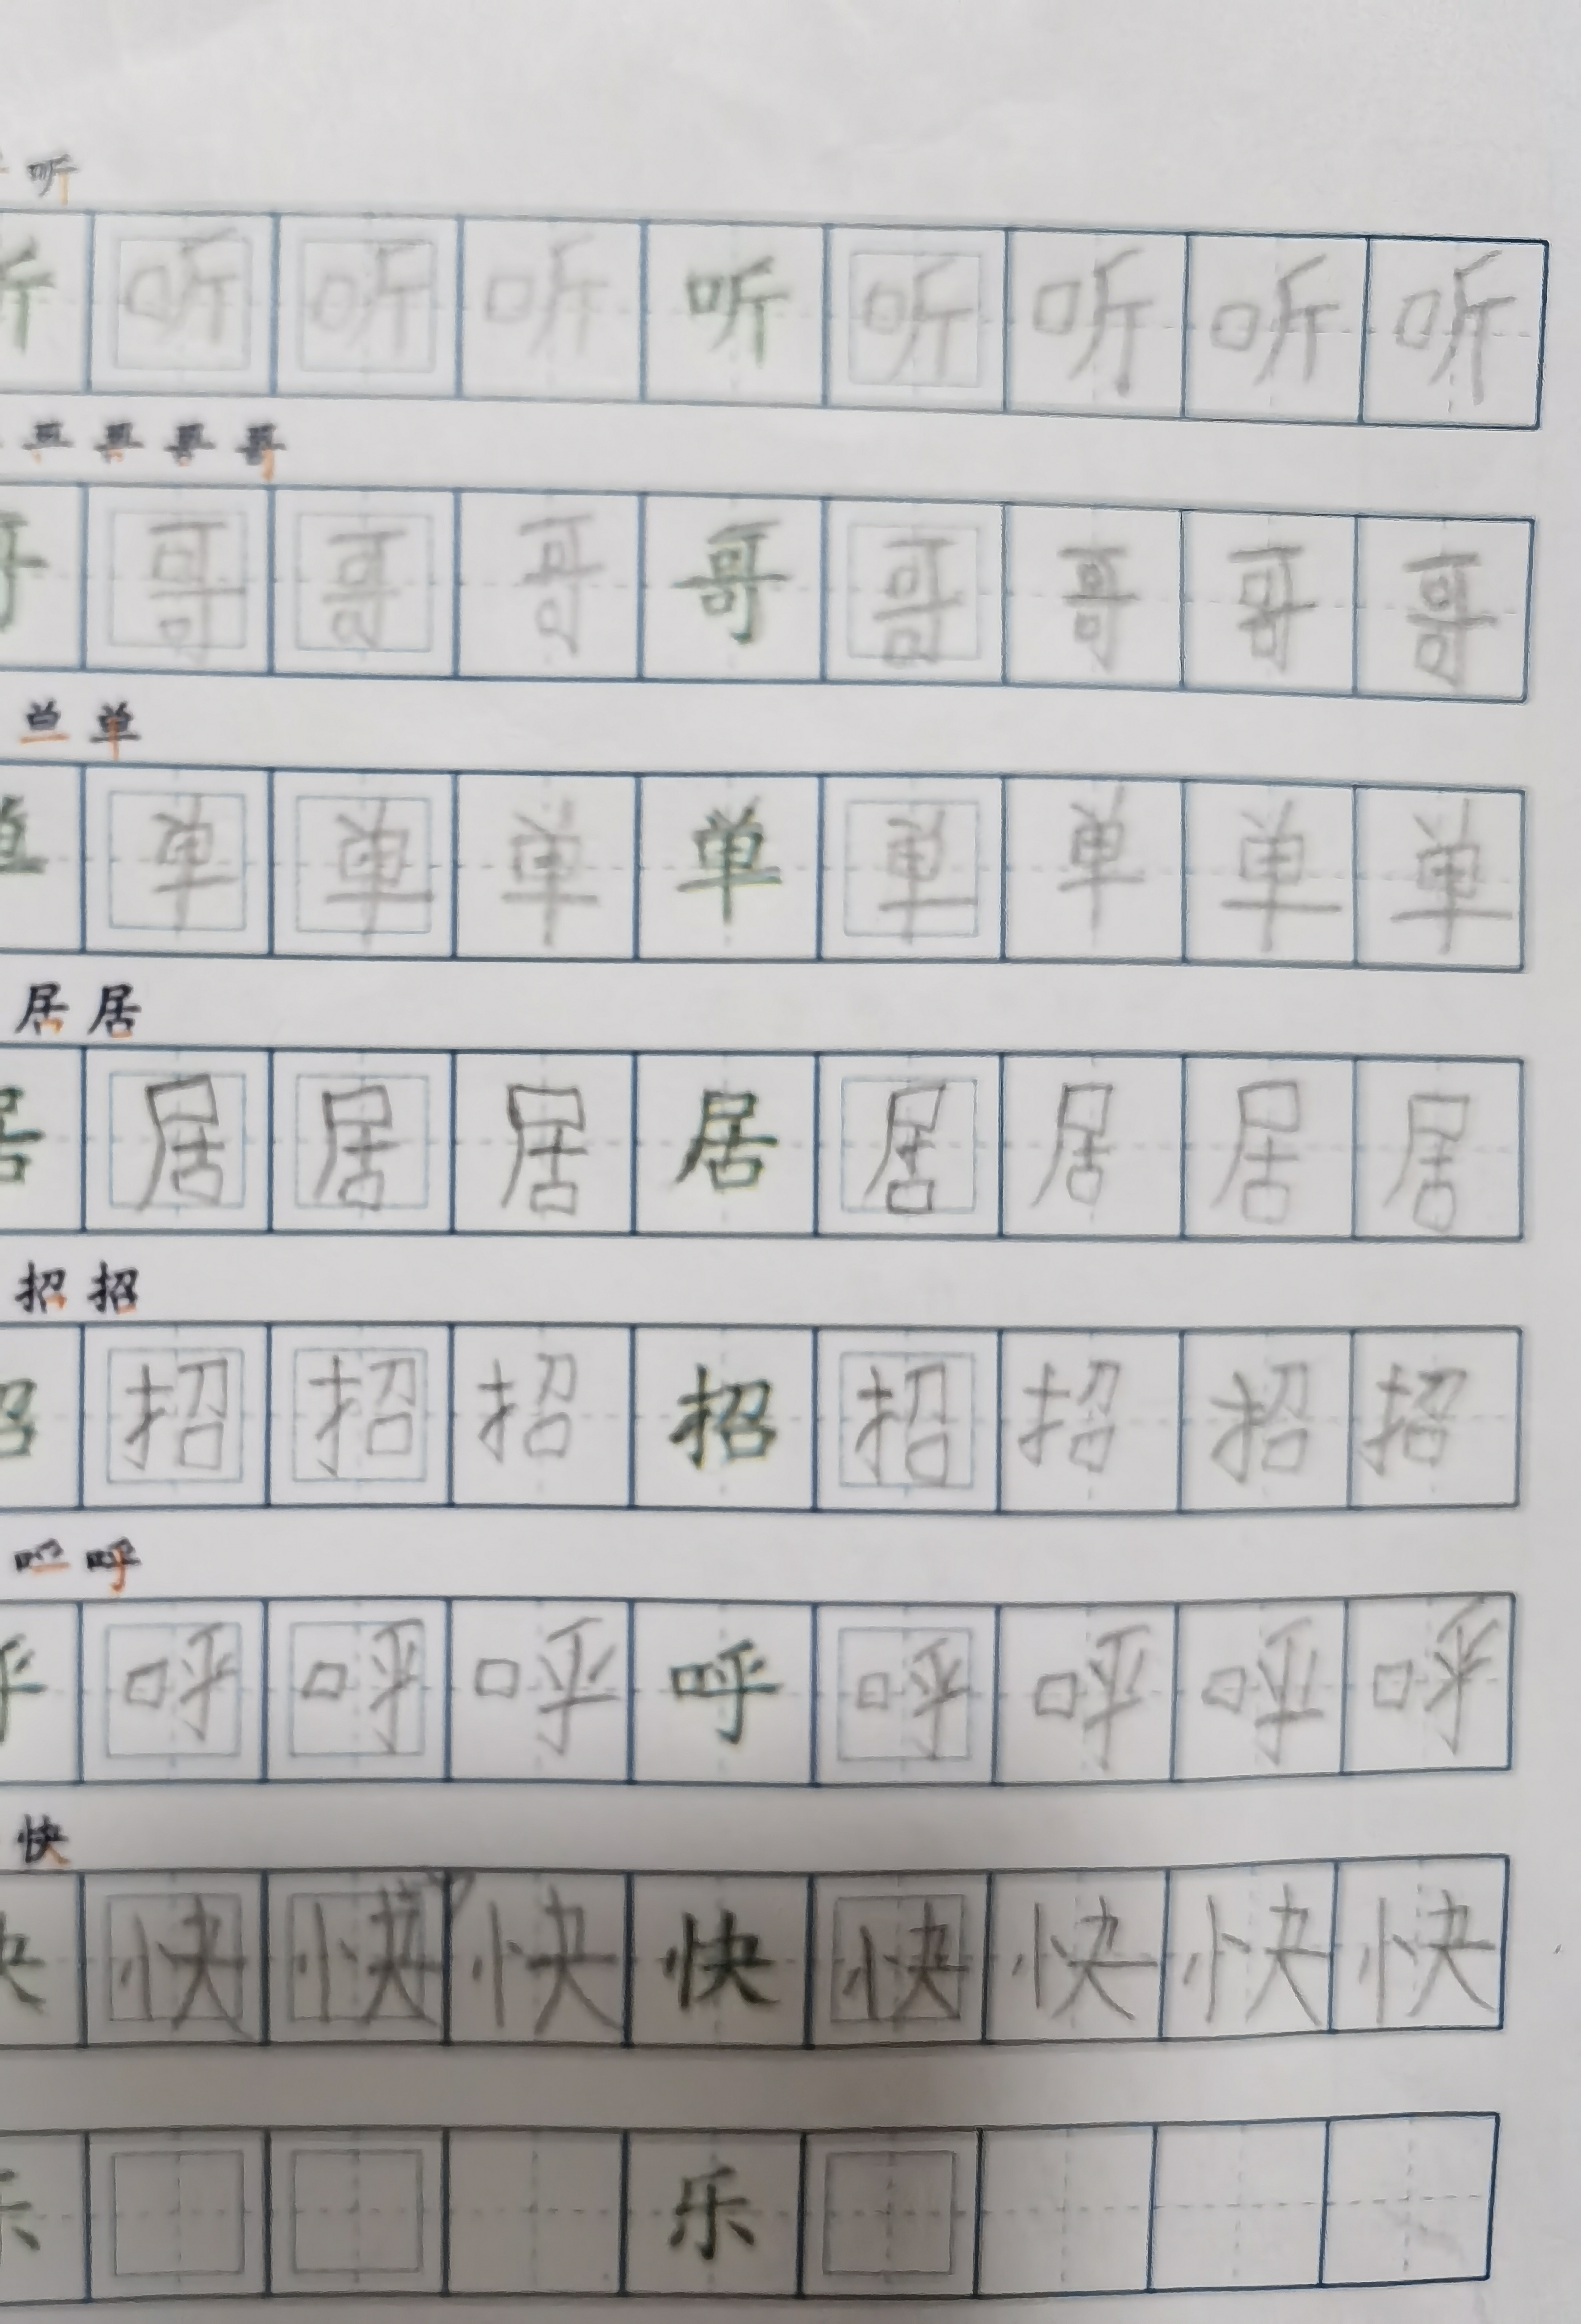 听
听 听 听 听 听 听 听 听 听
哥
哥 哥 哥 哥 哥 哥 哥 哥 哥
单
单 单 单 单 单 单 单 单 单
居 居
居 居 居 居 居 居 居 居 居
招 招
招 招 招 招 招 招 招 招 招
呼
呼 呼 呼 呼 呼 呼 呼 呼 呼
快
快 快 快 快 快 快 快 快 快
乐 乐